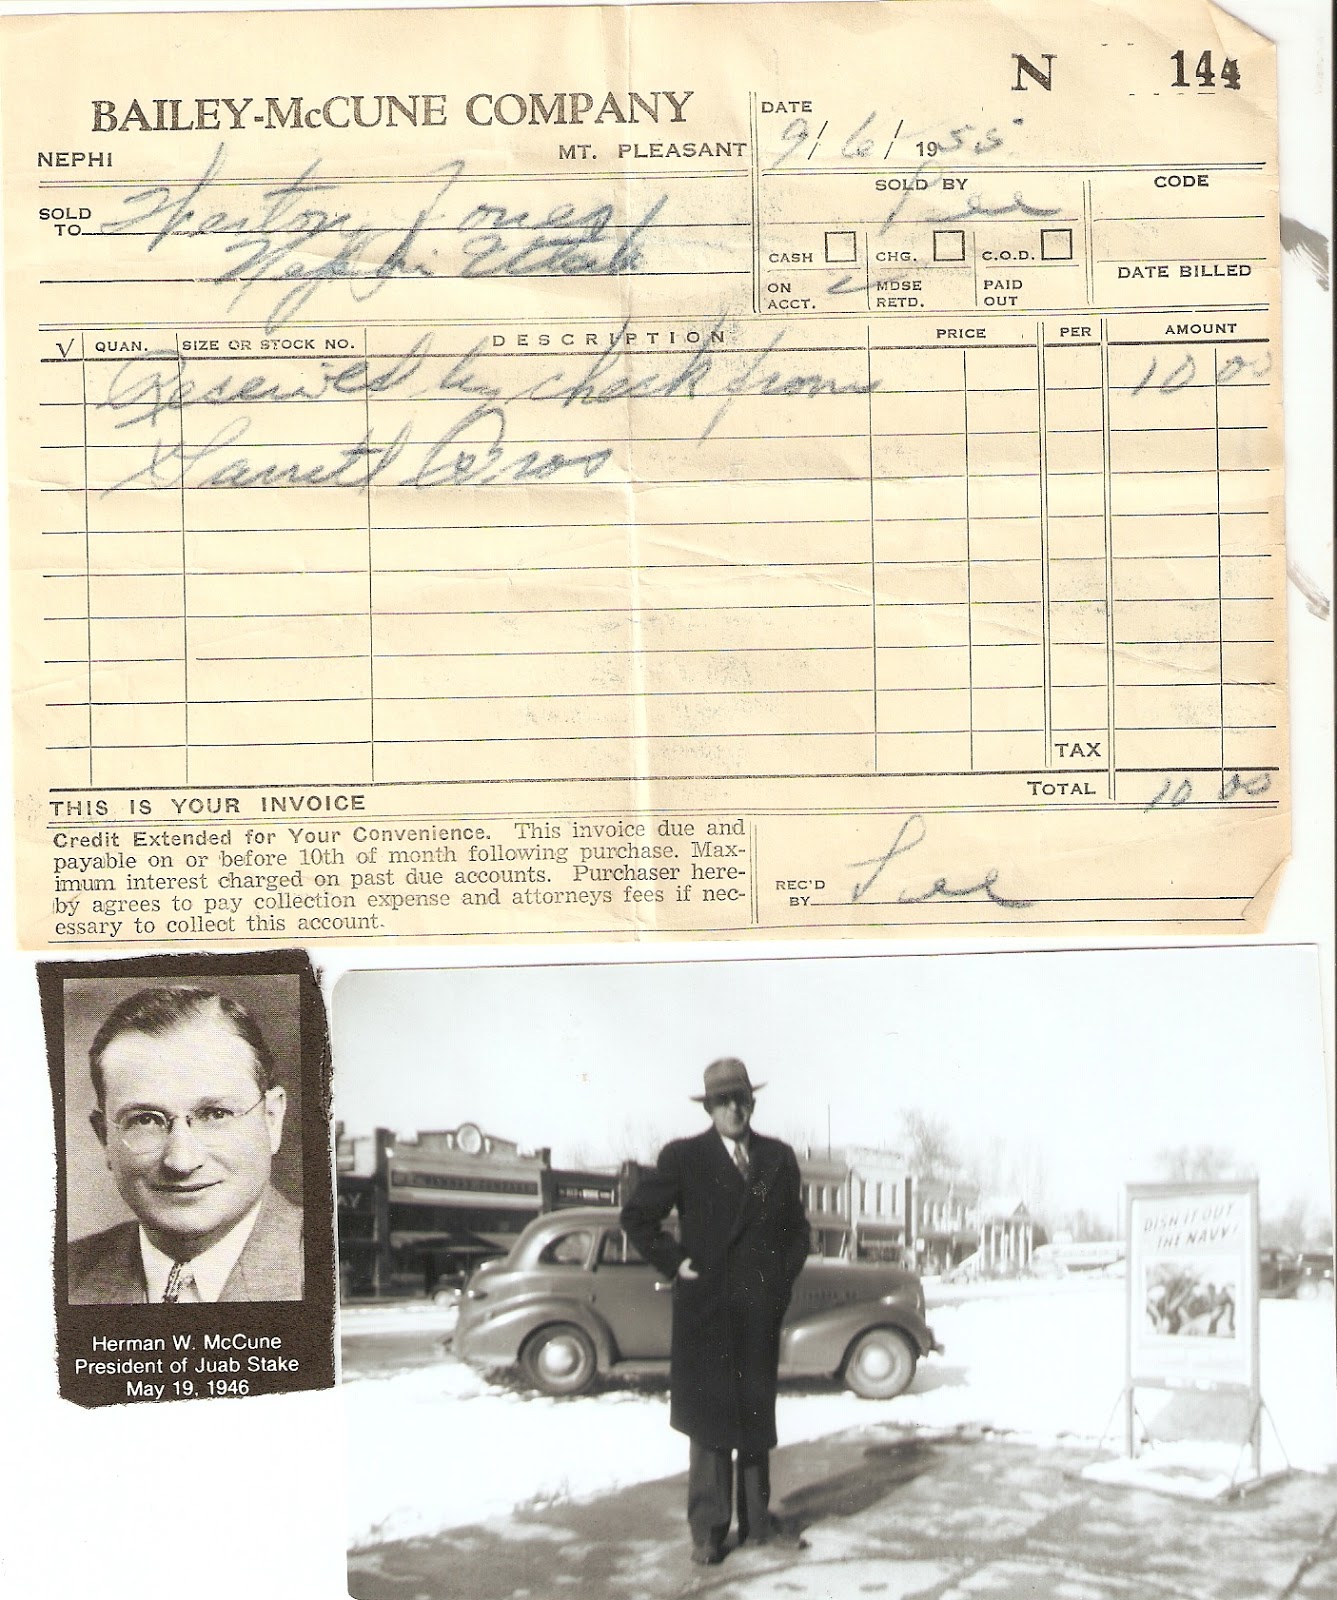 N 144
BAILEY-McCUNE COMPANY
NEPHI MT. PLEASANT
DATE 9/6/ 1955
SOLD BY Lee
CODE
SOLD TO Weston Jones
Nephi Utah
CASH CHG. C.O.D.
ON ACCT. ✓ MDSE RETD. PAID OUT
DATE BILLED
√ QUAN. SIZE OR STOCK NO. DESCRIPTION PRICE PER AMOUNT
Received by check from 10 00
Bros
TAX
TOTAL 10 00
THIS IS YOUR INVOICE
Credit Extended for Your Convenience. This invoice due and
payable on or before 10th of month following purchase. Max-
imum interest charged on past due accounts. Purchaser here-
by agrees to pay collection expense and attorneys fees if nec-
essary to collect this account.
REC'D BY Lee
Herman W. McCune
President of Juab Stake
May 19, 1946
DISH IT OUT
THE NAVY!